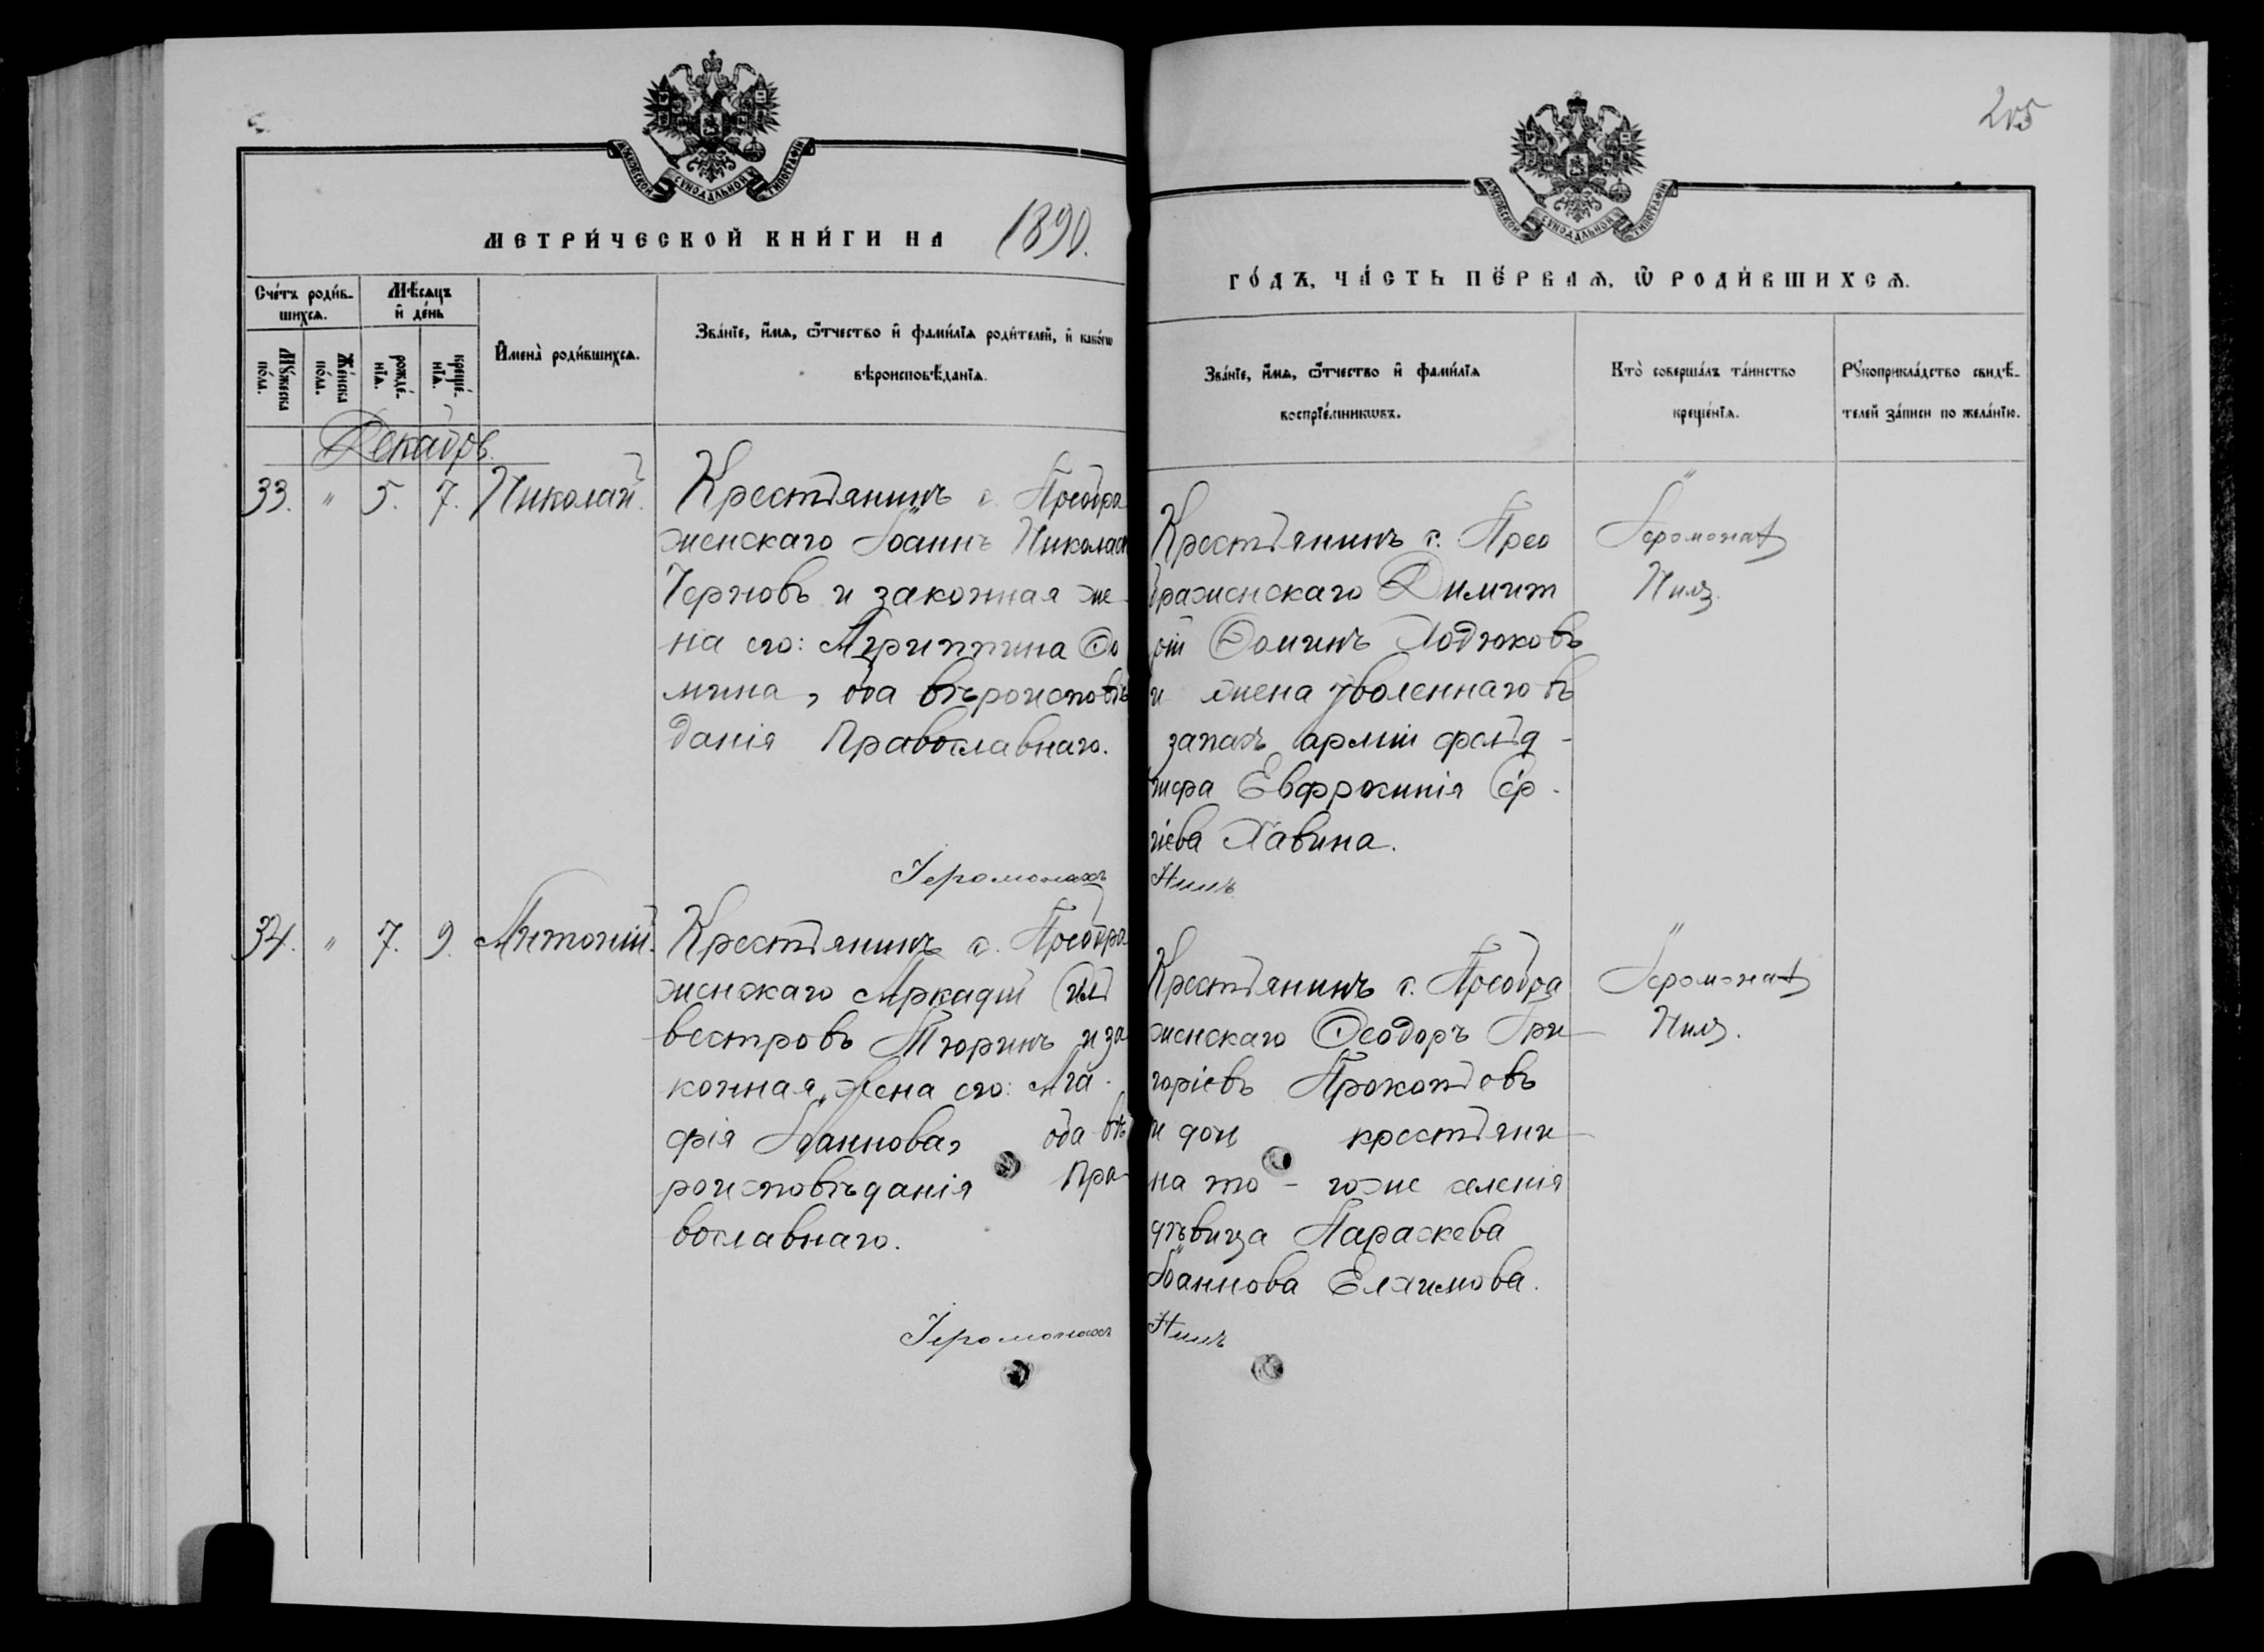 205
МОСКОВСКОЙ СѴНОДАЛЬНОЙ ТИПОГРАФІИ
МЕТРИ́ЧЕСКОЙ КНИ́ГИ НА 1890.
Сче́тъ роди́в-
шихсѧ.
Мꙋ́жеска
по́ла.
Же́нска
по́ла.
Мѣ́сѧцъ
и҆ де́нь
рожде́-
нїѧ.
креще́-
нїѧ.
И҆мена̀ роди́вшихсѧ.
Зва́нїе, и҆́мѧ, ѻ҆́тчество и҆ фами́лїѧ роди́телей, и҆ како́гѡ
вѣроисповѣ́данїѧ.
Декабрь.
33. " 5. 7. Николай.
Крестьянинъ с. Преобра
женскаго Іоаннъ Николаев
Черновъ и законная же-
на его: Агриппина Ѳо
мина, оба вѣроисповѣ
данія Православнаго.
Іеромонахъ
34. " 7. 9. Антоній.
Крестьянинъ с. Преобра
женскаго Аркадій Силь
вестровъ Тюринъ и за
конная жена его: Ага-
фія Іоаннова, оба вѣ
роисповѣданія Пра-
вославнаго.
Іеромонахъ
МОСКОВСКОЙ СѴНОДАЛЬНОЙ ТИПОГРАФІИ
ГО́ДЪ, ЧА́СТЬ ПЕ́РВАѦ, Ѡ҆ РОДИ́ВШИХСѦ.
Зва́нїе, и҆́мѧ, ѻ҆́тчество и҆ фами́лїѧ
воспрїе́мникѡвъ.
Кто̀ соверша́лъ та́инство
креще́нїѧ.
Рꙋкоприкла́дство свидѣ́-
телей за́писи по жела́нїю.
Крестьянинъ с. Прео
браженскаго Димит
рій Ѳоминъ Ходюковъ
и жена уволеннаго въ
запасъ арміи фельд-
шера Евфросинія Сер-
гіева Хавина.
Нилъ
Іеромонах
Нилъ.
Крестьянинъ с. Преобра
женскаго Ѳеодоръ Гри-
горіевъ Прокопьевъ
и дочь крестьяни-
на то - гоже селенія
дѣвица Параскева
Іоаннова Елхимова.
Нилъ
Іеромонах
Нилъ.